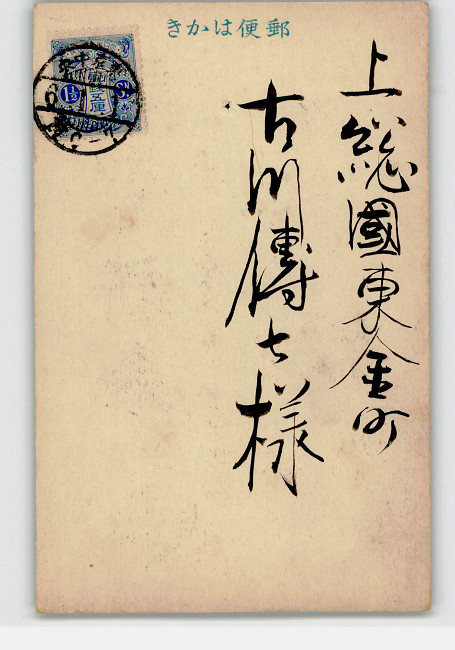 郵便はかき
上総國東金町
古川傳七様
1½